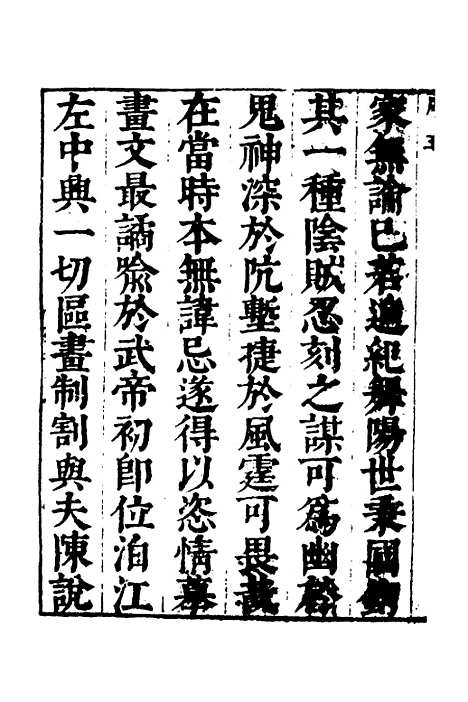 家無論已若過紀舞陽世秉國鈞
其一種陰賊忍刻之謀可為幽
鬼神深於阬塹捷於風霆可畏哉
在當時本無諱忌遂得以恣情摹
畫文最譎於武帝初卽位洎江
左中興一切區畫制割與夫陳說